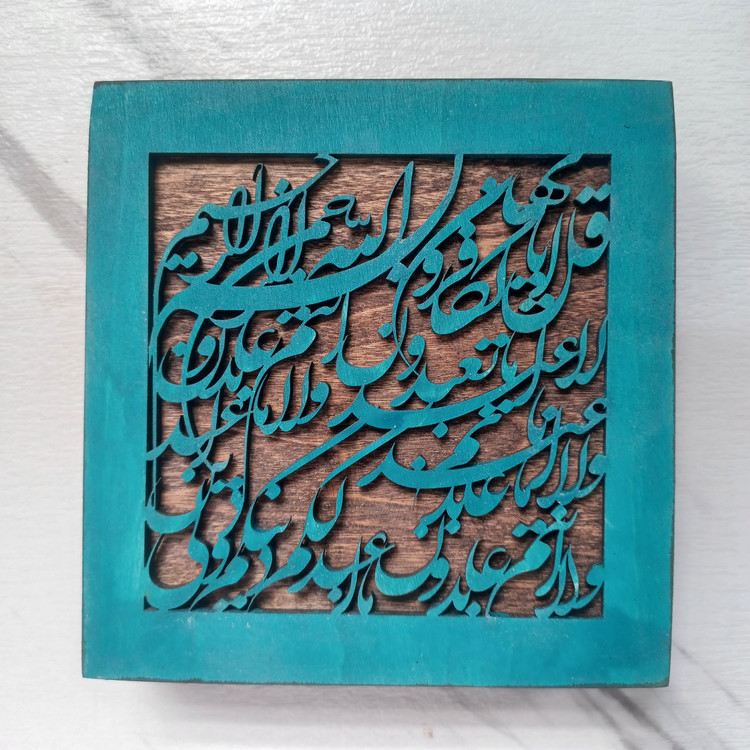 بسم الله الرحمن الرحیم
قل یا ایها الکافرون
لا اعبد ما تعبدون
ولا انتم عابدون ما اعبد
ولا انا عابد ما عبدتم
ولا انتم عابدون ما اعبد
لکم دینکم ولی دین